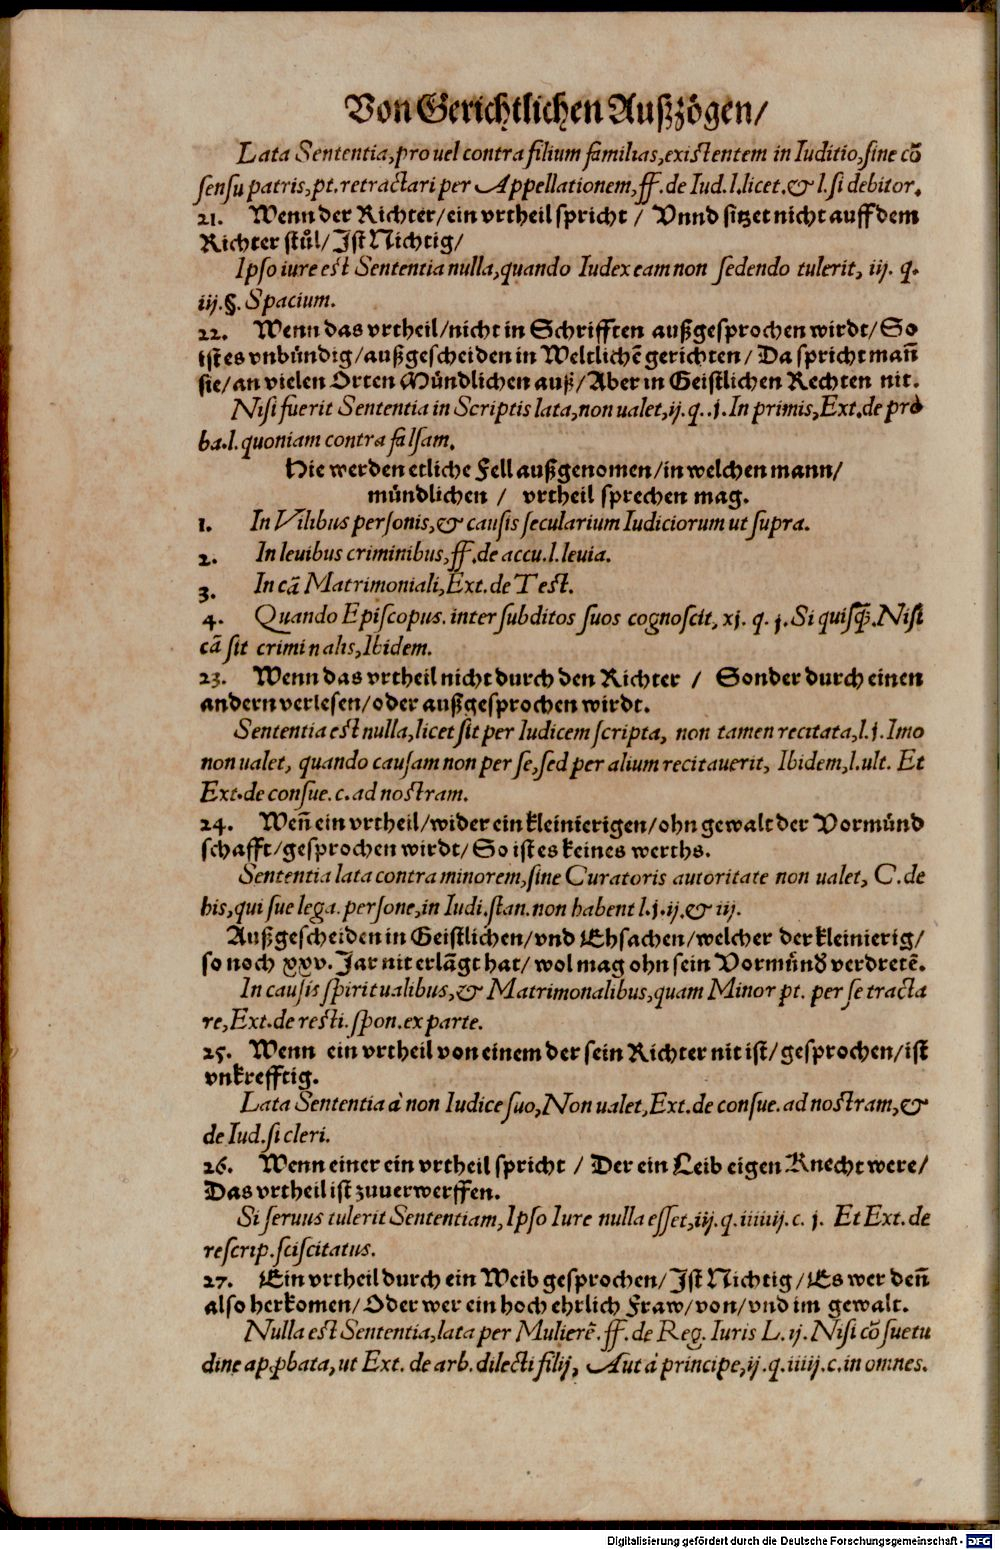 Von Gerichtlichen Außzögen/
Lata Sententia, pro uel contra filium familias, existentem in Iuditio, sine cõ
sensu patris, pt. retractari per Appellationem, ff. de Iud. l. licet. & l. si debitor.
21. Wenn der Richter/ ein vrtheil spricht / Vnnd sitzet nicht auff dem
Richter stůl/ Jst Nichtig/
Ipso iure est Sententia nulla, quando Iudex eam non sedendo tulerit, iij. q.
iij. §. Spacium.
22. Wenn das vrtheil/ nicht in Schrifften außgesprochen wirdt/ So
ist es vnbündig/ außgescheiden in Weltlichẽ gerichten/ Da spricht mañ
sie/ an vielen Orten Mündlichen auß/ Aber in Geistlichen Rechten nit.
Nisi fuerit Sententia in Scriptis lata, non ualet, ij. q. .j. In primis, Ext. de pro
ba. l. quoniam contra falsam.
Hie werden etliche Fell außgenomen/ in welchen mann/
mündlichen / vrtheil sprechen mag.
1. In Vilibus personis, & causis secularium Iudiciorum ut supra.
2. In leuibus criminibus, ff. de accu. l. leuia.
3. In cã Matrimoniali, Ext. de Test.
4. Quando Episcopus. inter subditos suos cognoscit, xj. q. j. Si quisq̃. Nisi
cã sit criminalis, Ibidem.
23. Wenn das vrtheil nicht durch den Richter / Sonder durch einen
andern verlesen/ oder außgesprochen wirdt.
Sententia est nulla, licet sit per Iudicem scripta, non tamen recitata, l. j. Imo
non ualet, quando causam non per se, sed per alium recitauerit, Ibidem, l. ult. Et
Ext. de consue. c. ad nostram.
24. Weñ ein vrtheil/ wider ein kleinierigen/ ohn gewalt der Vormünd
schafft/ gesprochen wirdt/ So ist es keines werths.
Sententia lata contra minorem, sine Curatoris autoritate non ualet, C. de
his, qui sue lega. persone, in Iudi. stan. non habent l. j. ij. & iij.
Außgescheiden in Geistlichen/ vnd Ehsachen/ welcher der kleinierig/
so noch xxv. Jar nit erlãgt hat/ wol mag ohn sein Vormünd verdretẽ.
In causis spiritualibus, & Matrimonalibus, quam Minor pt. per se tracta
re, Ext. de resti. spon. ex parte.
25. Wenn ein vrtheil von einem der sein Richter nit ist/ gesprochen/ ist
vnkrefftig.
Lata Sententia à non Iudice suo, Non ualet, Ext. de consue. ad nostram, &
de Iud. si cleri.
26. Wenn einer ein vrtheil spricht / Der ein Leib eigen Knecht were/
Das vrtheil ist zuuerwerffen.
Si seruus tulerit Sententiam, Ipso Iure nulla esset, iij. q. iiiiij. c. j. Et Ext. de
rescrip. sciscitatus.
27. Ein vrtheil durch ein Weib gesprochen/ Jst Nichtig/ Es wer deñ
also herkomen/ Oder wer ein hoch ehrlich Fraw/ von/ vnd im gewalt.
Nulla est Sententia, lata per Mulierẽ. ff. de Reg. Iuris L. ij. Nisi cõsuetu
dine ap̱pbata, ut Ext. de arb. dilecti filij, Aut à principe, ij. q. iiiij. c. in omnes.
Digitalisierung gefördert durch die Deutsche Forschungsgemeinschaft - DFG